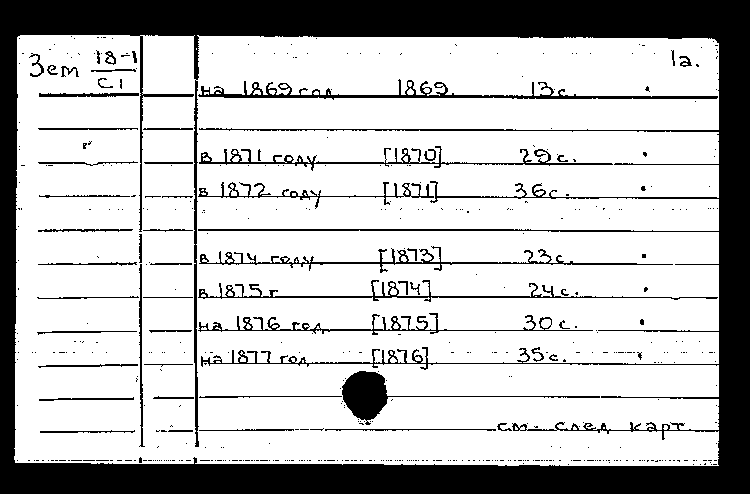 Зем 18-1 1а.
С1
на 1869 год 1869. 13 с.
в 1871 году [1870] 29 с.
в 1872 году [1871] 36 с.
в 1874 году [1873] 23 с.
в 1875 г [1874] 24 с.
на 1876 год [1875] 30 с.
на 1877 год [1876] 35 с.
см. след карт